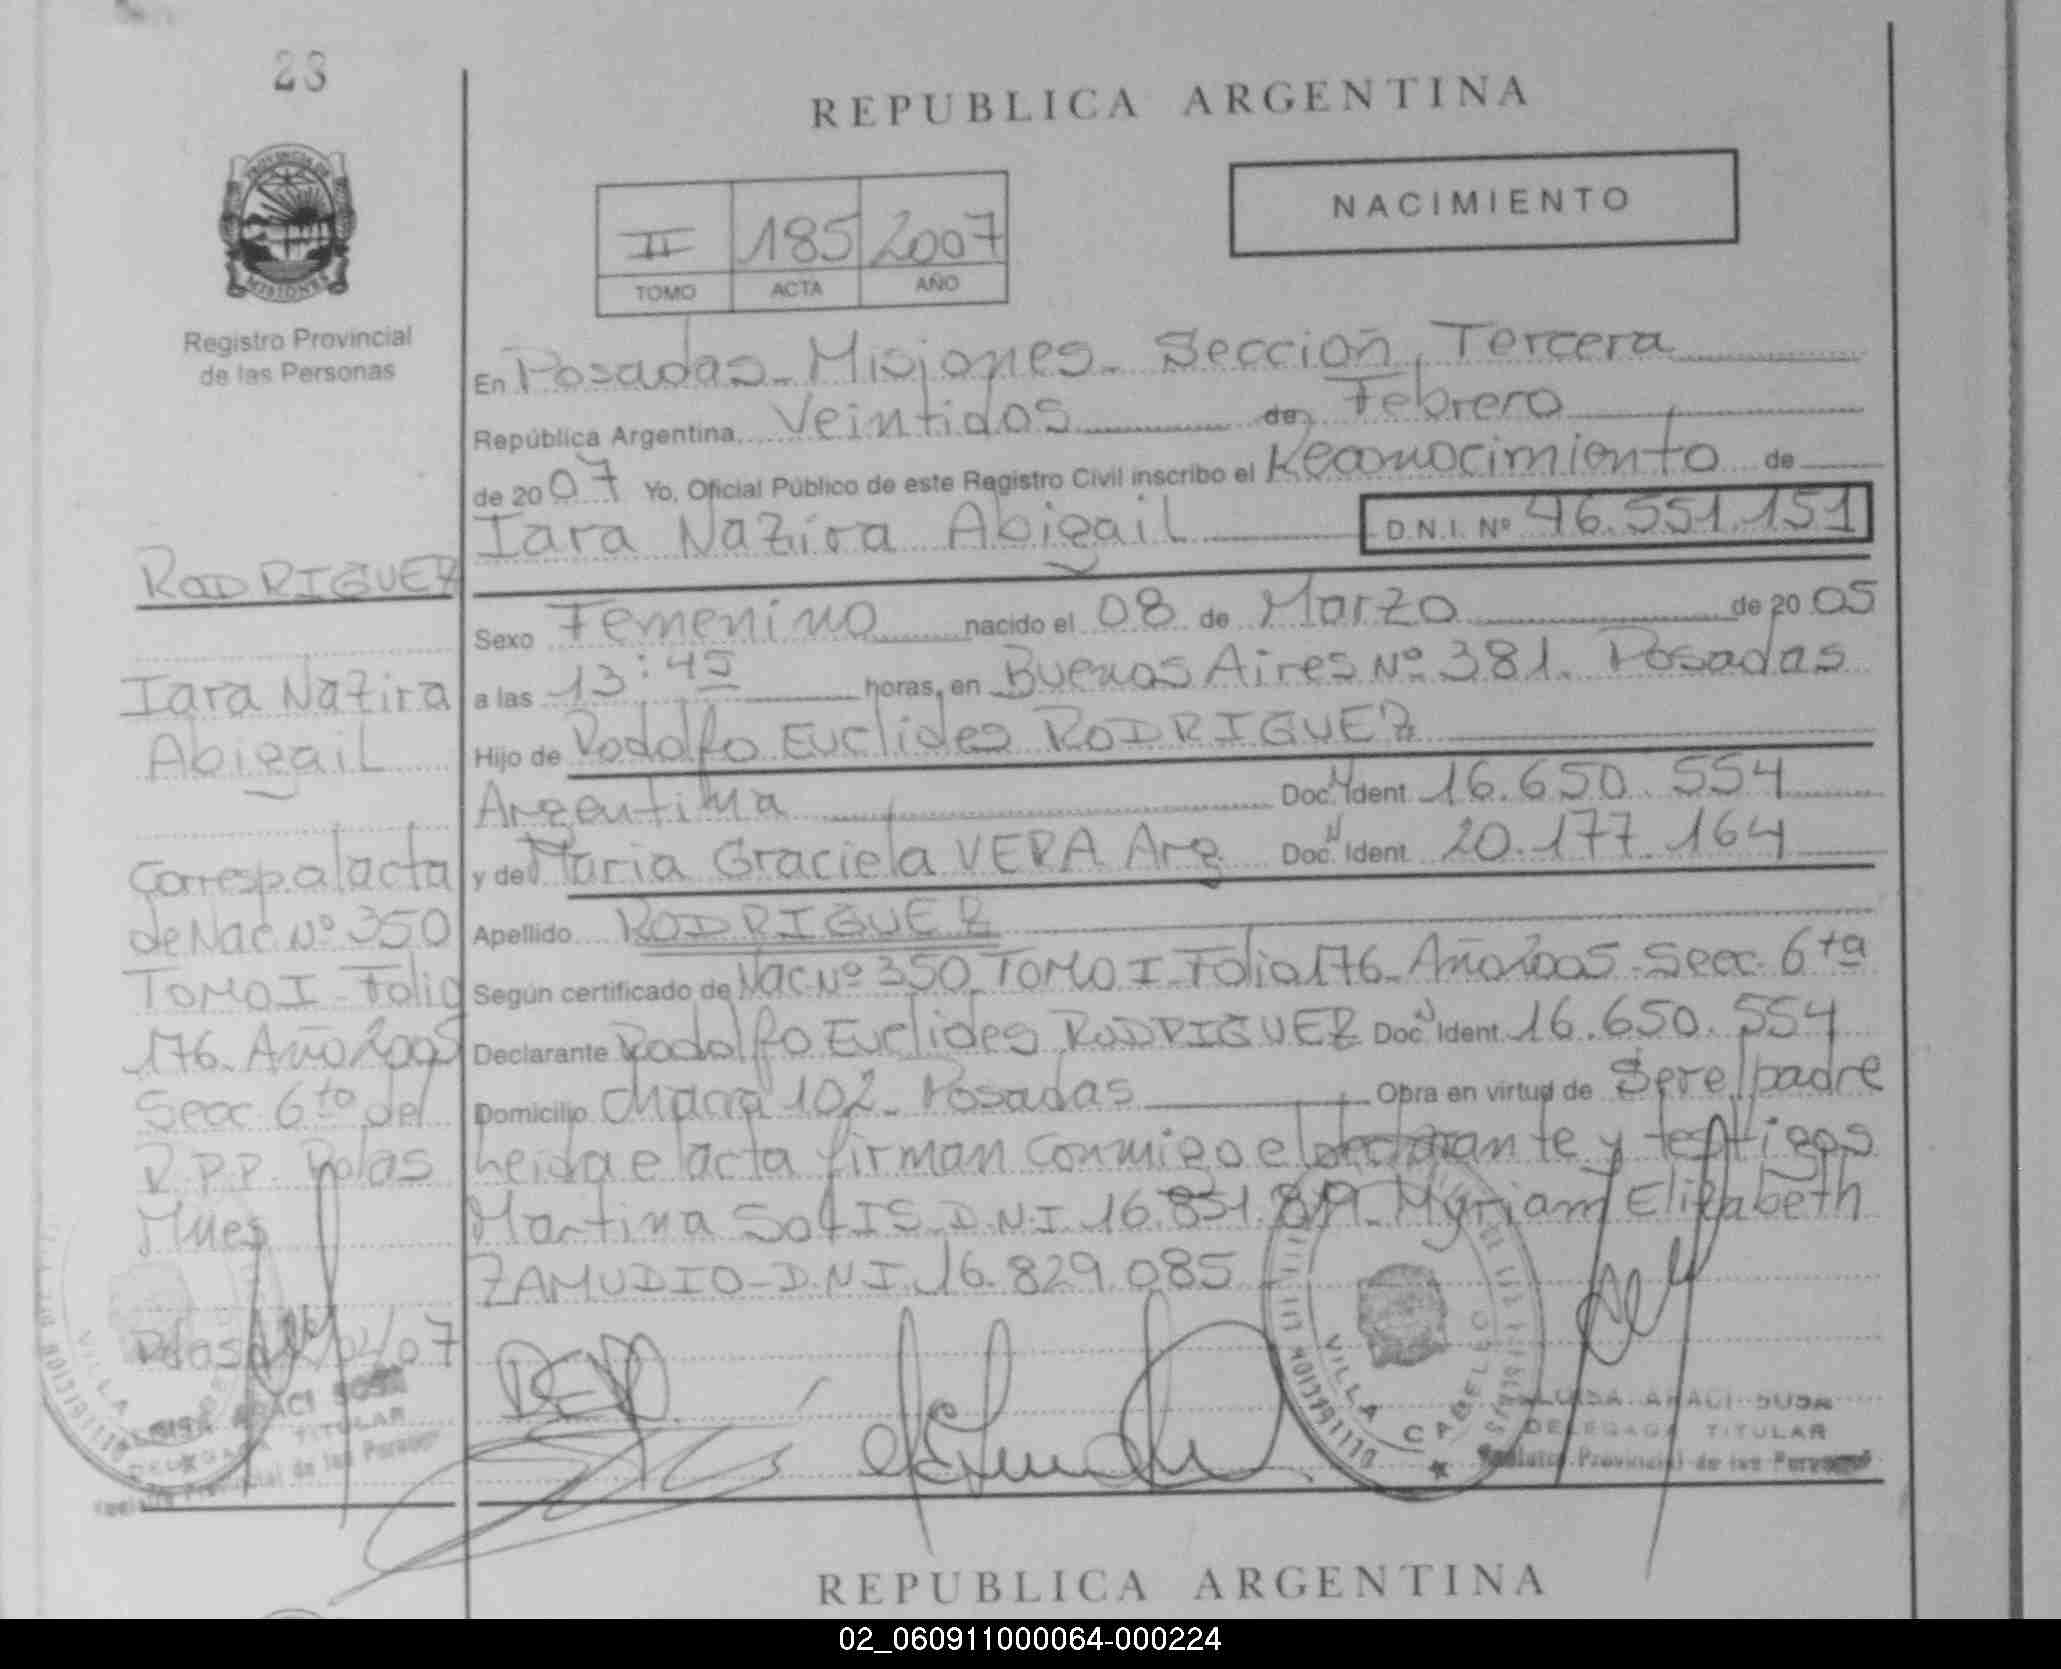 23
REPUBLICA ARGENTINA
NACIMIENTO
II 185 2007
TOMO ACTA AÑO
PROVINCIA DE
MISIONES
Registro Provincial
de las Personas
En Posadas - Misiones - Sección Tercera
República Argentina Veintidos de Febrero
de 2007 Yo, Oficial Público de este Registro Civil inscribo el Reconocimiento de
Iara Nazira Abigail D.N.I. Nº 46.551.151
Sexo Femenino nacido el 08 de Marzo de 2005
a las 13:45 horas, en Buenos Aires Nº 381. Posadas
Hijo de Rodolfo Euclides RODRIGUEZ
Argentina Doc. Ident. 16.650.554
y de Maria Graciela VERA Arg Doc. Ident. 20.177.164
Apellido RODRIGUEZ
Según certificado de Nac Nº 350 TOMO I - Folio 176 - Año 2005 - Secc. 6ta
Declarante Rodolfo Euclides RODRIGUEZ Doc. Ident. 16.650.554
Domicilio chacra 102 - Posadas Obra en virtud de Ser el padre
Leida el acta firman conmigo el declarante y testigos
Martina SOLIS D.N.I. 16.851. Myriam Elizabeth
ZAMUDIO - D.N.I. 16.829.085
RODRIGUEZ
Iara Nazira
Abigail
Corresp. al acta
de Nac Nº 350
TOMO I - Folio
176 - Año 2005
Secc 6to del
R.P.P. Pdas
Mnes
VILLA CABELLO
LUISA ARACI SOSA
DELEGADA TITULAR
Registro Provincial de las Personas
VILLA CABELLO
LUISA ARACI SOSA
DELEGADA TITULAR
Registro Provincial de las Personas
REPUBLICA ARGENTINA
02_060911000064-000224